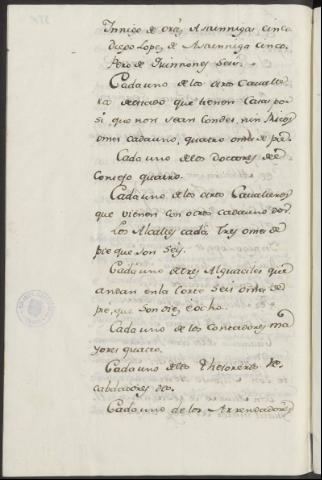 Innigo de ortz Astunniga cinco
Diego Lopez de Astunniga cinco.
Pero de Quinnones Seis.
Cada uno de los otros Cavalle-
ros de estado que tienen Casa por
si, que non sean Condes, nin Ricos
omes cada uno, quatro omes de pie.
Cada uno de los Doctores del
Consejo quatro.
Cada uno de los otros Cavalleros
que vienen con otros cada uno dos.
Los Alcalles cada, tres omes de
pie que son Seis.
Cada uno de tres Alguaciles que
andan en la Corte Seis omes de
pie, que son diez è ocho.
Cada uno de los Contadores ma
yores quatro.
Cada uno de los Thesoreros Re-
cabdadores dos.
Cada uno de los Arrendadores